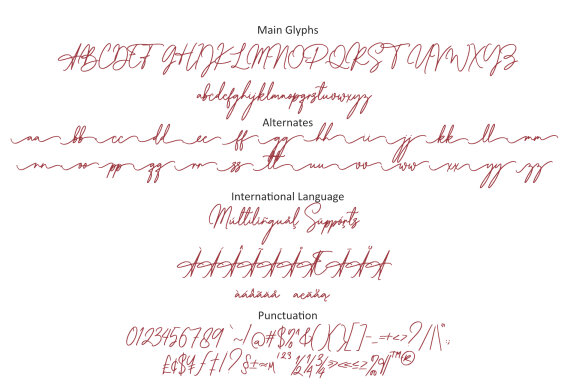 Main Glyphs
ABCDEFGHIJKLMNOPQRSTUVWXYZ
abcdefghijklmnopqrstuvwxyz
Alternates
aa bb cc dd ee ff gg hh ii jj kk ll mm
nn oo pp qq rr ss tt uu vv ww xx yy zz
International Language
Multilingual Supports
àáâãäå aeäāq
Punctuation
0123456789`~!@#$%^&(){}[]-_=+<>?/|\":